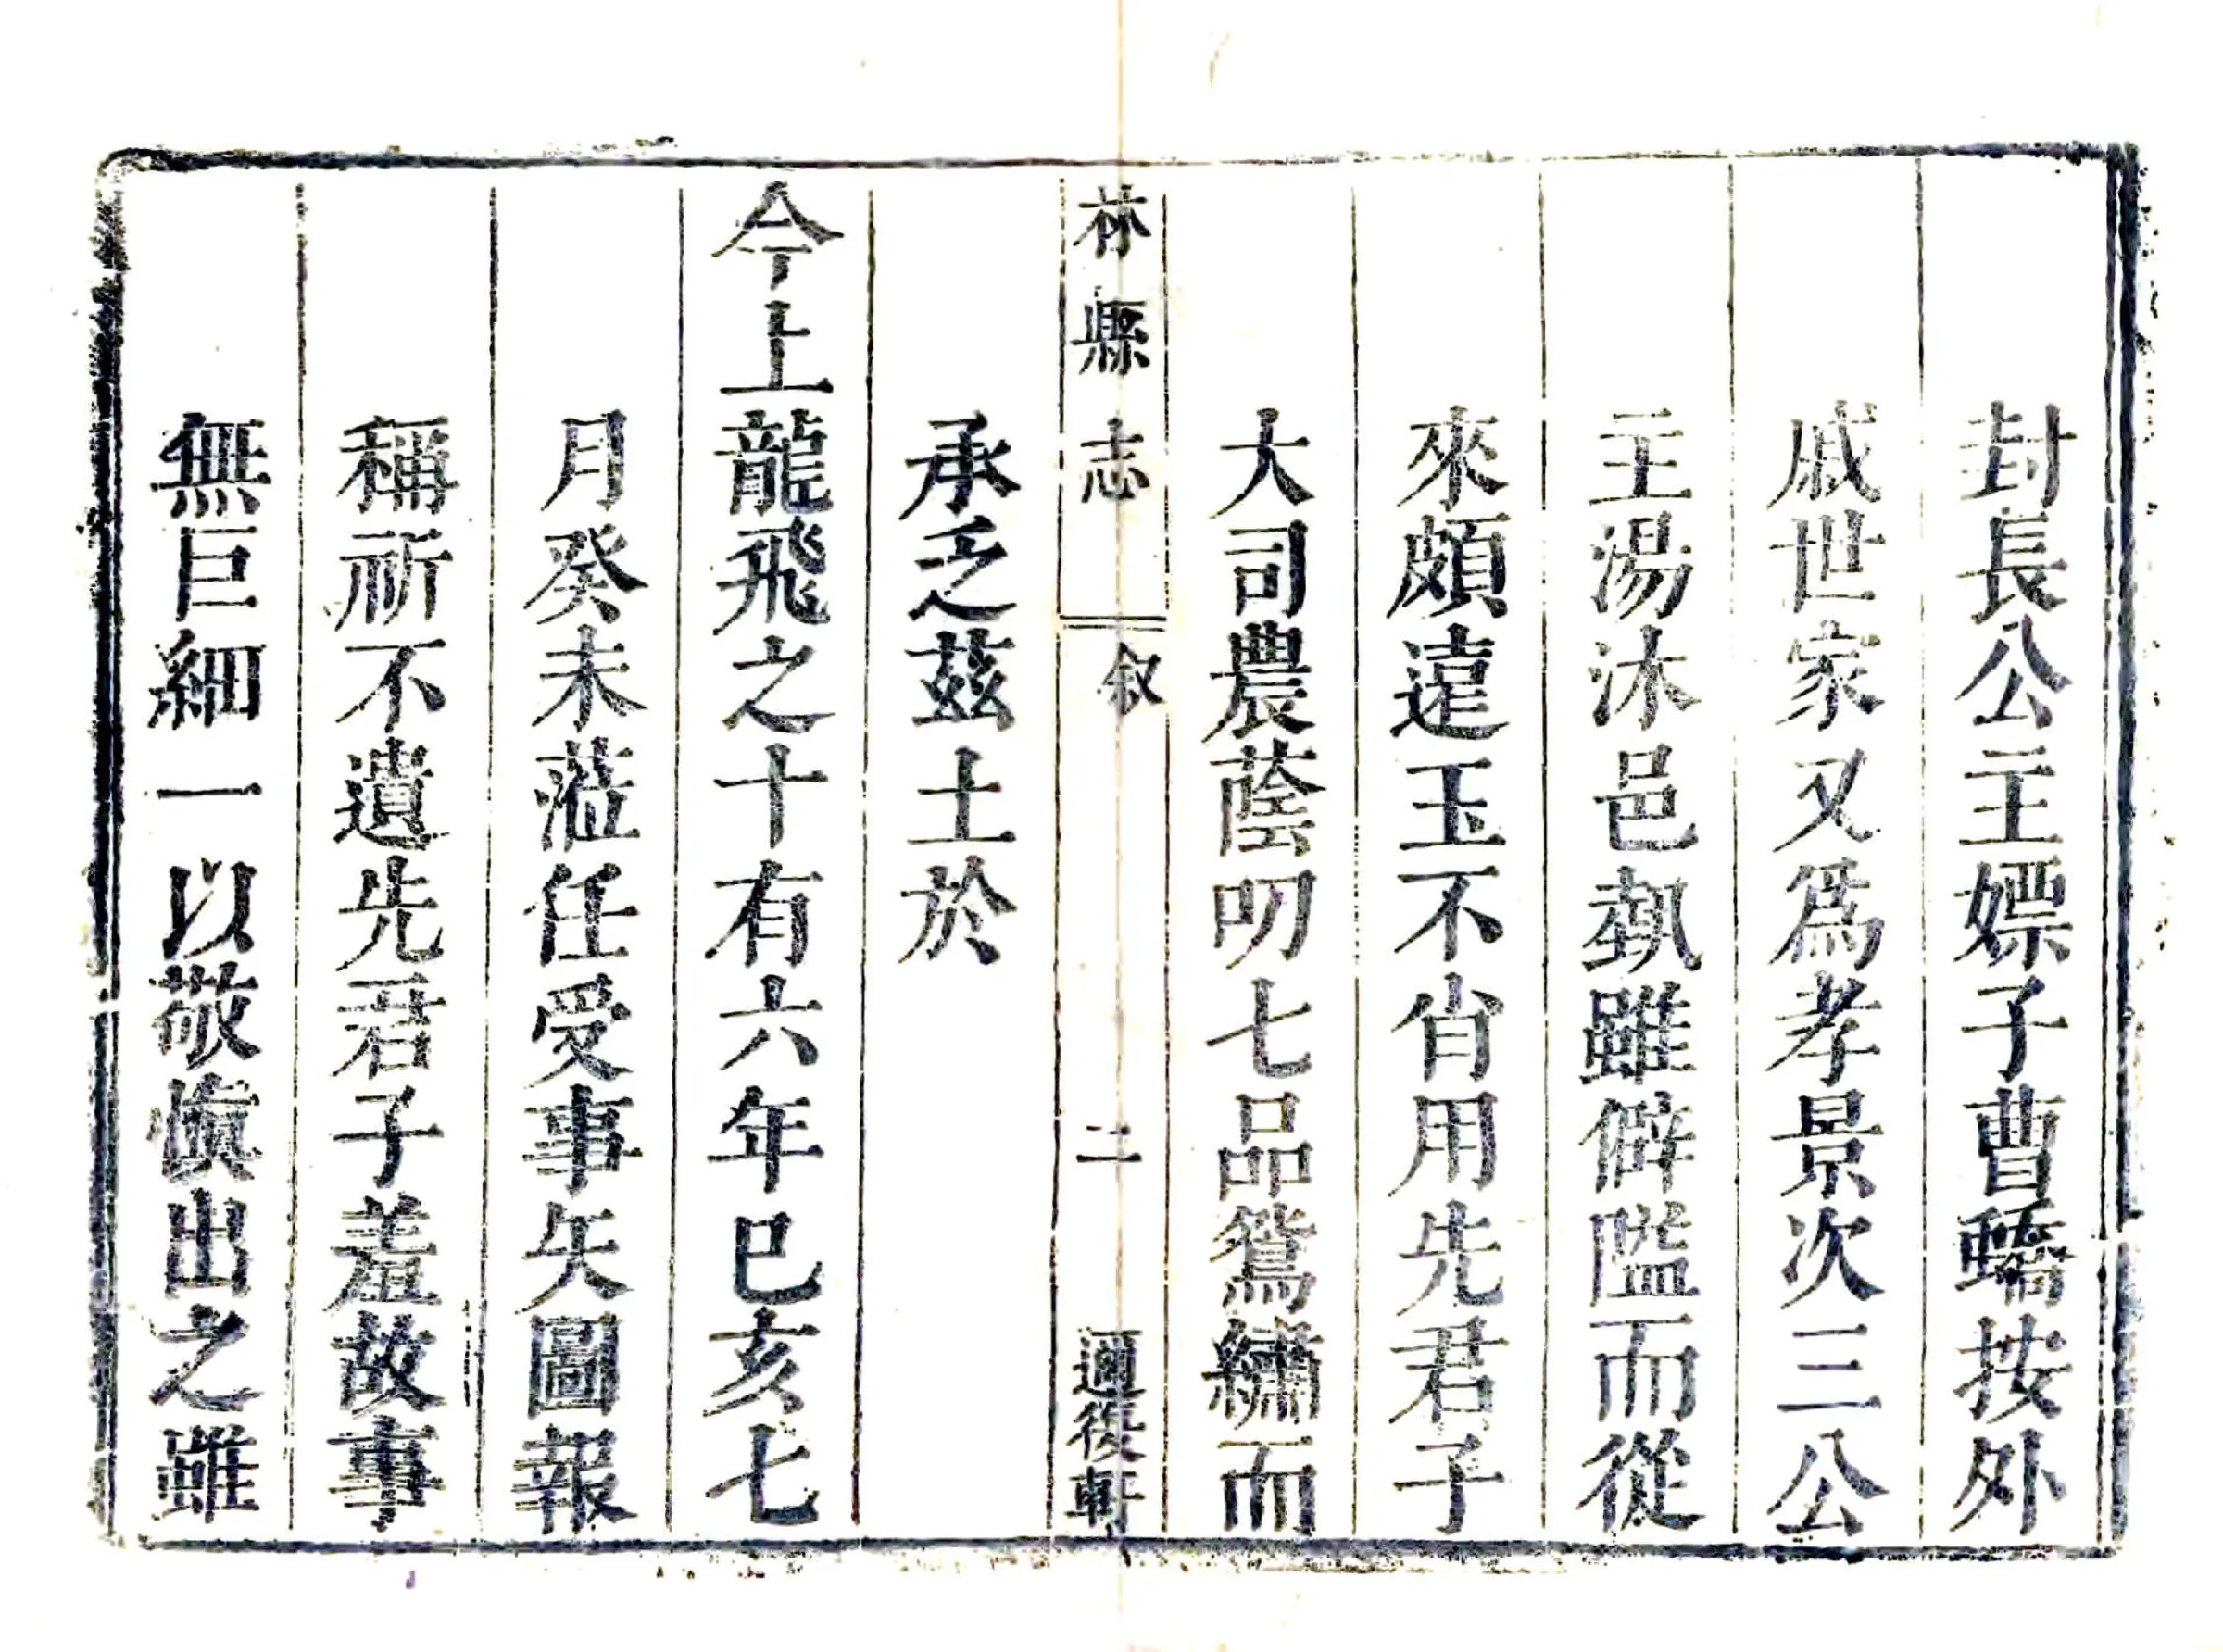 封長公主嫖子曹蟜按外
戚世家又爲孝景次三公
主湯沐邑埶雖僻隘而從
來頗遠玉不肖用先君子
大司農蔭叨七品鴛繡而
承乏茲土於
林縣志
叙
二
邇後軒
今上龍飛之十有六年巳亥七
月癸未蒞任受事矢圖報
稱祈不遺先君子羞故事
無巨細一以敬慎出之雖